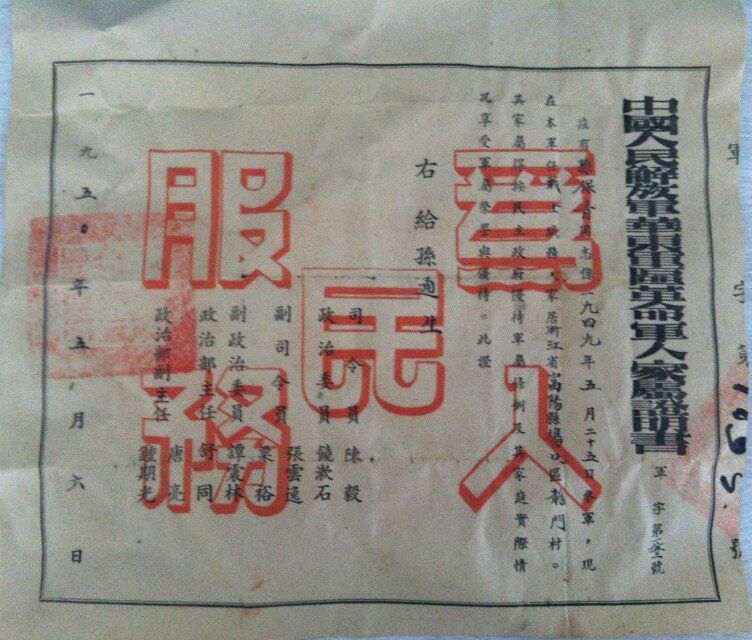 中國人民解放軍華東軍區革命軍人家屬證明書
軍字第 號
茲有孫保 同志係一九四九年五月二十五日參軍,現
在本軍任戰士職務。家居浙江省富陽縣場口區龍門村。
其家屬得按民主政府優待軍屬條例及其家庭實際情
況享受軍屬榮譽與優待。此證
右給孫通生
司令員 陳毅
政治委員 饒漱石
副司令員 張雲逸
粟裕
副政治委員 譚震林
政治部主任 舒同
政治部副主任 唐亮
鍾期光
一九五〇年五月六日
為人民服務
軍字第 號